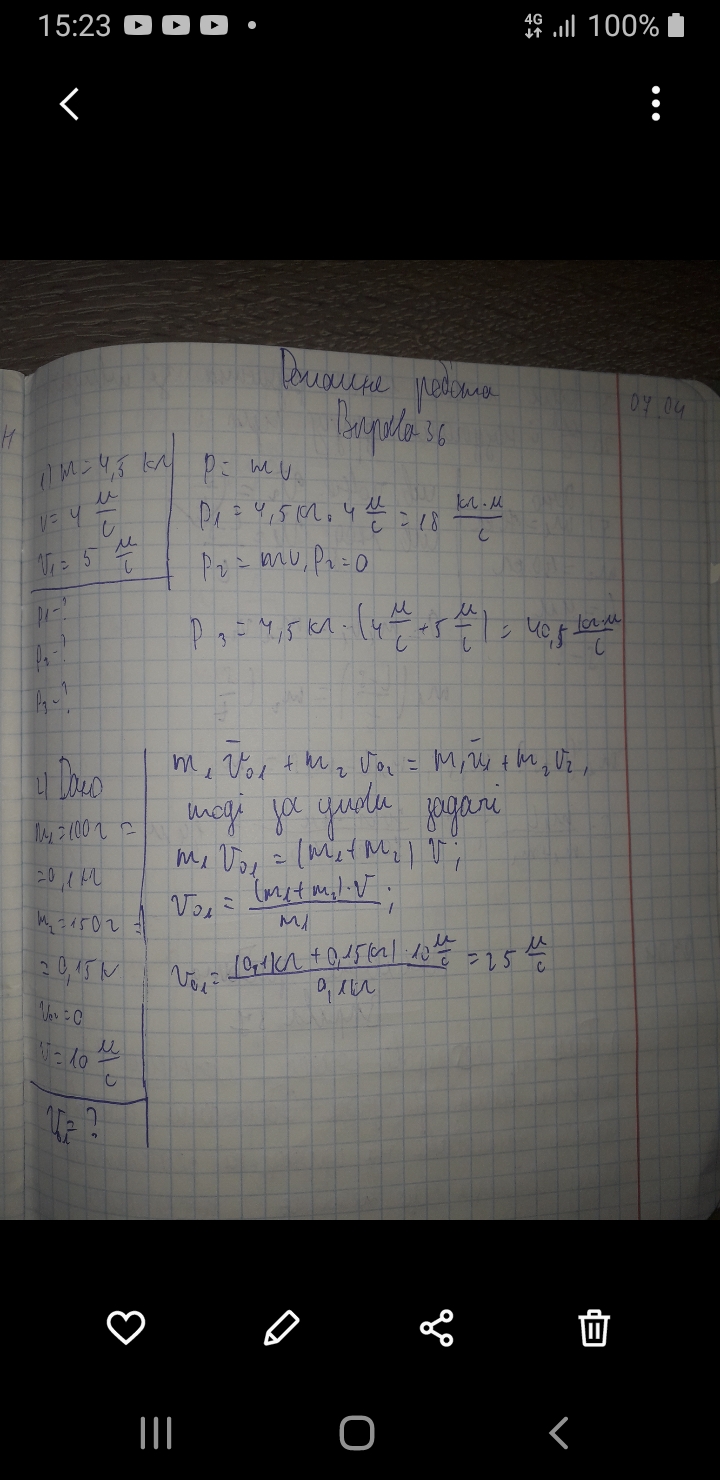 15:23
4G
100%
Домашнє робота
07.04
Вправа 36
1) m = 4,5 кг
v = 4 м/с
v₁ = 5 м/с
p₁ - ?
p₂ - ?
p₃ - ?
p = mv
p₁ = 4,5 кг · 4 м/с = 18 кг·м/с
p₂ = mv, p₂ = 0
p₃ = 4,5 кг · (4 м/с + 5 м/с) = 40,5 кг·м/с
4) Дано
m₁ = 100 г =
= 0,1 кг
m₂ = 150 г =
= 0,15 кг
v₀₂ = 0
v = 10 м/с
v₀₁ = ?
m₁ v̄₀₁ + m₂ v₀₂ = m₁ v̄₁ + m₂ v₂,
тоді за умови задачі
m₁ v₀₁ = (m₁ + m₂) v;
v₀₁ = (m₁ + m₂) · v / m₁;
v₀₁ = (0,1 кг + 0,15 кг) · 10 м/с / 0,1 кг = 25 м/с